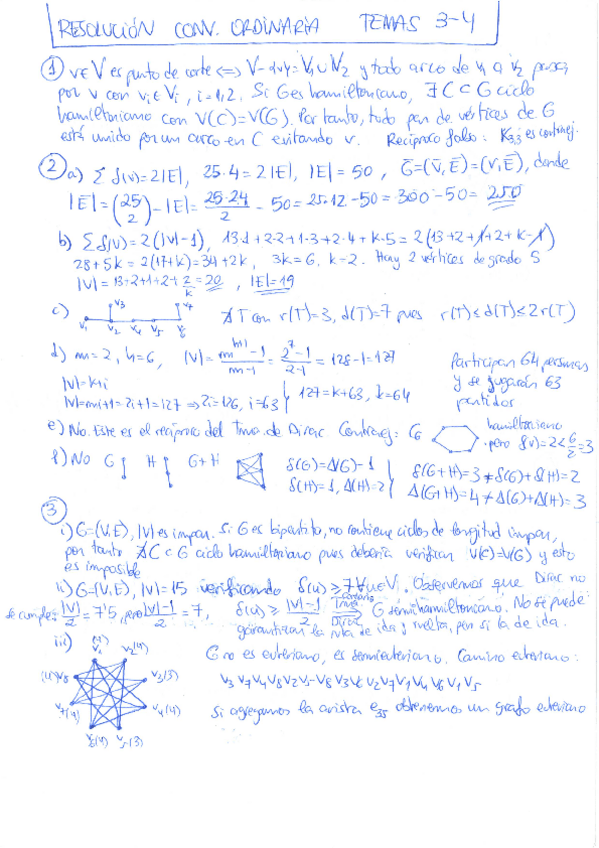 RESOLUCIÓN CONV. ORDINARIA TEMAS 3-4
① v∈V es punto de corte <=> V-{v}= V₁∪V₂ y todo arco de v₁ a v₂ pasa
por v con vi∈Vi, i=1,2. Si G es hamiltoniano, ∃ C⊂G ciclo
hamiltoniano con V(C)=V(G). Por tanto, todo par de vértices de G
está unido por un arco en C evitando v. Recíproco falso: K3,3 es contraej.
② a) Σ δ(v)=2|E|, 25·4=2|E|, |E|=50, G̅=(V̅,E̅)=(V,E̅), donde
|E̅|=(25 2)-|E|=25·24/2 - 50=25·12-50=300-50=250
b) Σδ(v)=2(|V|-1), 13·1+2·2+1·3+2·4+k·5=2(13+2+1+2+k-1)
28+5k=2(17+k)=34+2k, 3k=6, k=2. Hay 2 vértices de grado 5
|V|=13+2+1+2+2=20, |E|=19
k
c) v₃ v₇ ∄T con r(T)=3, d(T)=7 pues r(T)≤d(T)≤2r(T)
v₁ v₂ v₄ v₅ v₆
d) m=2, h=6, |V|=m^(h+1)-1/m-1=2⁷-1/2-1=128-1=127
|V|=k+i
|V|=mi+1=2i+1=127 ⇒ 2i=126, i=63 } 127=k+63, k=64
Participan 64 personas
y se jugarán 63
partidos
e) No. Este es el recíproco del Tma. de Dirac Contraej: C6 hamiltoniano
pero δ(v)=2<6/2=3
f) No G H G+H δ(G)=Δ(G)=1 δ(G+H)=3≠δ(G)+δ(H)=2
δ(H)=1, Δ(H)=2 Δ(G+H)=4≠Δ(G)+Δ(H)=3
③
i) G=(V,E), |V| es impar. Si G es bipartito, no contiene ciclos de longitud impar,
por tanto ∄ C⊂G ciclo hamiltoniano pues debería verificar V(C)=V(G) y esto
es imposible
ii) G=(V,E), |V|=15 verificando δ(u)≥7 ∀u∈V. Observemos que Dirac no
se cumple: |V|/2=7'5, pero |V|-1/2=7, δ(u)≥|V|-1/2 Corolario Tma Dirac G semihamiltoniano. No se puede
garantizar la ruta de ida y vuelta, pero si la de ida.
iii) G no es euleriano, es semieuleriano. Camino euleriano:
v₃ v₇ v₄ v₈ v₂ v₅ v₈ v₃ v₆ v₂ v₇ v₁ v₄ v₆ v₁ v₅
Si agregamos la arista e₃₅ obtenemos un grafo euleriano
(4) v₁ v₂(4)
(4) v₈ v₃(3)
v₇(4) v₄(4)
v₆(4) v₅(3)